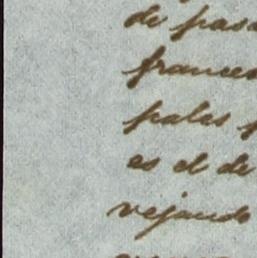 de pasa
frances
palas
es el de
vejando